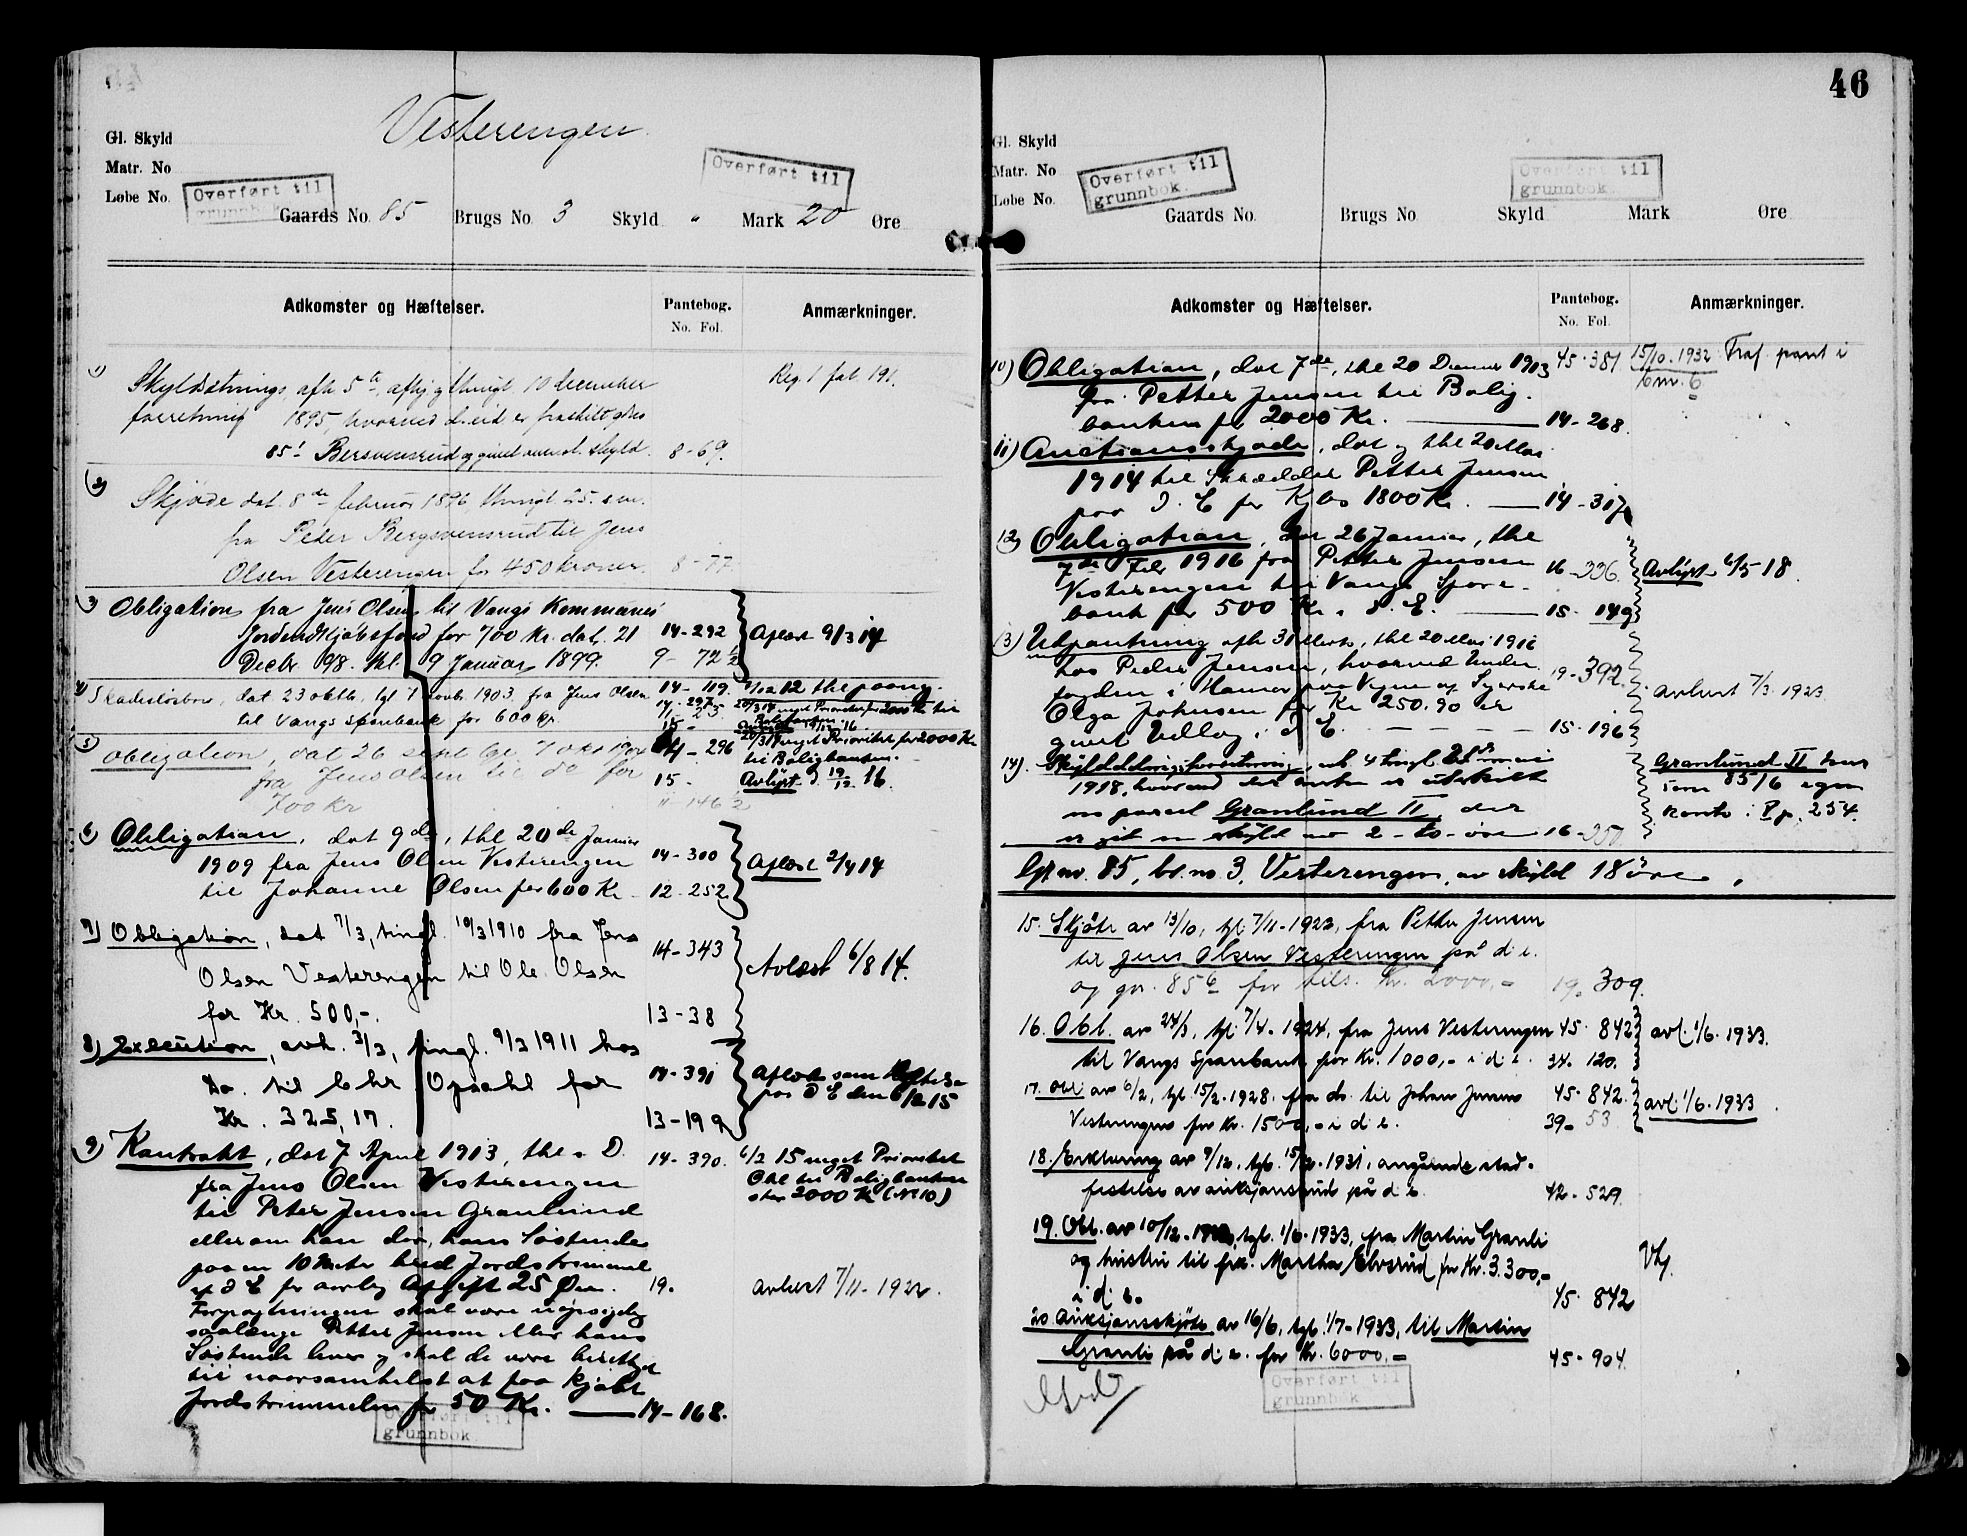 46
Vesterengen
Gl. Skyld
Matr. No
Løbe No.
Overført til
grunnbok
Overført til
Gaards No. 85 Brugs No. 3 Skyld " Mark 20 Øre
Adkomster og Hæftelser. Pantebog. Anmærkninger.
No. Fol.
1) Skyldsætnings afh. 5te, thingl. 10 december Reg. 1 fol. 191.
forretning 1895, hvorved d. eid. er fraskilt gno
85/1 Bersvensrud og givet skyld. 8-69.
2) Skjøde dat. 8de februar 1896, thingl. 25. s.m.
fra Peder Bergsvensrud til Jens
Olsen Vesterengen for 450 kroner. 8-77.
3) Obligation fra Jens Olsen til Vangs Kommunes
Jordindkjøbsfond for 700 Kr. dat. 21 14-292 Aflæst 9/3 14
Decbr. 98. thl. 9 Januar 1899. 9-72½
4) Skadesløsbrev, dat 23 oktb., tgl 7 novb. 1903. fra Jens Olsen 14-119.
til Vangs Sparebank for 600 kr.
5) Obligation, dat 26 sept 14-296
fra Jens Olsen til do for til Boligbanken.
700 kr 15- Avlyst d. 19/12 16.
11-146½
6) Obligation, dat 9de, thl 20de Januar
1909 fra Jens Olsen Vesterengen 14-300 Aflæst 2/4 14
til Johanne Olsen for 600 Kr. 12-252
7) Obligation, dat 7/3, tingl. 10/3 1910 fra Jens 14-343
Olsen Vesterengen til Ole Olsen Avlæst 6/8 14.
for Kr. 500,-. 13-38
8) Execution, avh. 3/3, tingl. 9/3 1911 hos
Do. til Chr Opsahl for 14-391 Aflæst som Heftelse
Kr. 325,17. 13-199 paa d E den 6/2 15
9) Kontrakt, dat 7 April 1913, thl s. D. 14-390. 6/2 15 veget Prioritet
fra Jens Olsen Vesterengen Obl til Boligbanken
til Peter Jensen Granlund stor 2000 Kr (No 10)
eller om han dør, hans Søskende
paa en 10 Meter bred Jordstrimmel
af d E for aarlig Afgift 25 Øre. 19. avlæst 7/11-1922.
Forpagtningen skal være uopsigelig
saalænge Petter Jensen eller hans
Søskende lever og skal de være berettiget
til naarsomhelst at faa kjøbt
Jordstrimmelen for 50 Kr. 14-168.
Overført til
grunnbok
Gl. Skyld
Matr. No
Løbe No.
Overført til
grunnbok.
Overført til
grunnbok.
Gaards No. Brugs No Skyld Mark Øre
Adkomster og Hæftelser. Pantebog. Anmærkninger.
No. Fol.
10) Obligation, dat 7de, thl 20 1913 45-381 15/10. 1932: Traf. pant i
fra Petter Jensen til Bolig- bnr. 6
banken for 2000 Kr. 14-268.
11) Auctionsskjøde, dat og thl 20 Mai
1914 til Skrædder Petter Jensen
paa d. E for Kr 1800 Kr. 14-317
12) Obligation, dat 26 Januar, thl
7de Febr 1916 fra Petter Jensen 16-336. Avlyst 6/5-18.
Vesterengen til Vangs Spare-
bank for 500 Kr. i d. E. 15-149
13) Utpantning afh 31 Marts, thl 20 Mai 1916
hos Peder Jensen, hvorved Under- 19-392.
fogden i Hamar paa Vegne af Syerske avlæst 7/3. 1923
Olga Johnsen for Kr 250.90 er
givet Udlæg i d E. 15-196
14) Skylddelingsforretning
1918, hvorved fra denne er utskilt
en parcel Granlund II, der
er git en skyld av 2 - to - øre 16-350
Granlund II har
som 85/6 egen
konto i Rg. 254.
Gr. no. 85, br. no 3, Vesterengen, av skyld 18 øre.
15. Skjøte av 13/10, tgl. 7/11-1922, fra Petter Jensen
til Jens Olsen Vesterengen på d. e.
og gr. 85/6 for tils. Kr. 2000,- 19. 309.
16. Obl. av 24/3, tgl. 7/4-1924, fra Jens Vesterengen 45-842 avl. 1/6-1933.
til Vangs Sparebank for Kr. 1000,- i d. e. 34. 120.
17. Obl av 6/2, tgl. 15/2-1928, fra do. til Johan Jensens 45-842. avl. 1/6-1933
Vesterengen for Kr. 1500,- i d. e. 39- 53
18. Erklæring av 9/12, tgl. 15/12-1931, angående stad-
festelse av auksjonsbud på d. e. 42-529.
19. Obl. av 10/12- tgl. 1/6-1933, fra Martin Granli
og hustru til frk. Martha Elvsrud for Kr. 3.300,-
i d. e. 45-842
20. Auksjonsskjøte av 16/6, tgl. 1/7-1933, til Martin
Granli på d. e. for Kr. 6000,- 45-904.
Overført til
grunnbok